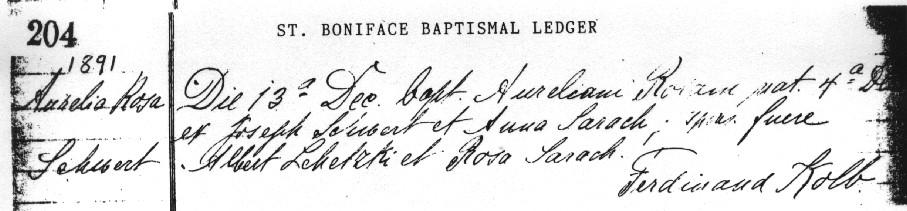 204
ST. BONIFACE BAPTISMAL LEDGER
1891
Aurelia Rosa
Schwert
Die 13ª Dec. bapt. Aureliam Rosam nat. 4ª De
ex Joseph Schwert et Anna Sarach; fuere
Albert Lehetzki et Rosa Sarach.
Ferdinand Kolb.